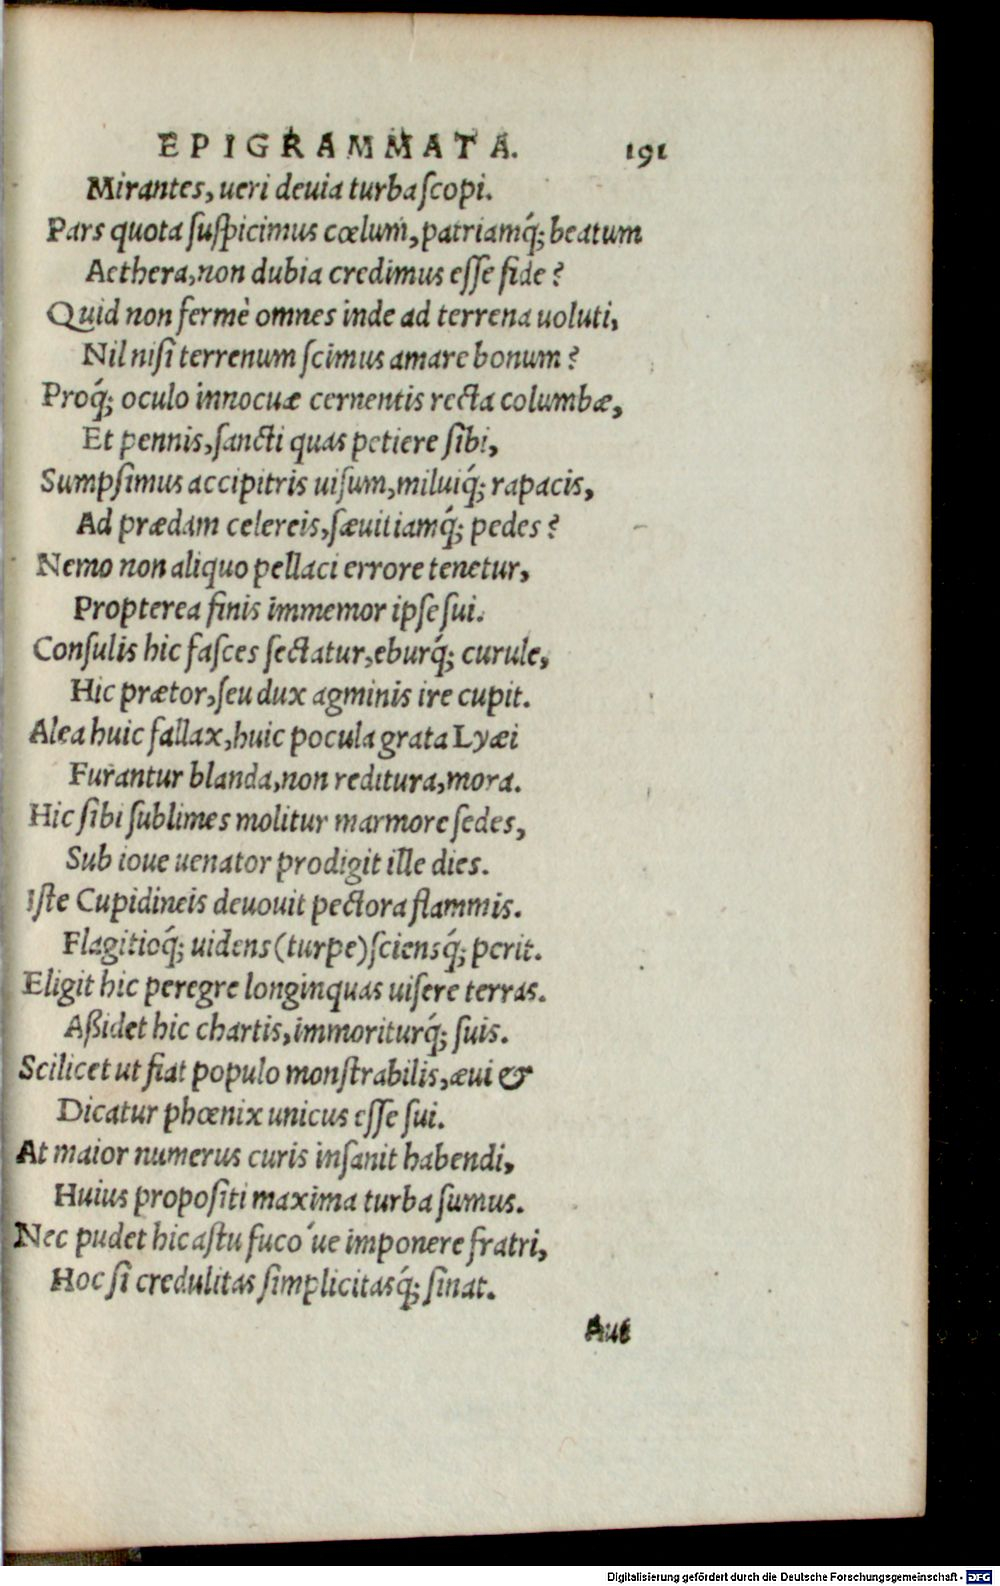 EPIGRAMMATA. 191
Mirantes, ueri deuia turba ſcopi.
Pars quota ſuſpicimus cœlum, patriamq́; beatum
Aethera, non dubia credimus eſſe fide?
Quid non fermè omnes inde ad terrena uoluti,
Nil niſi terrenum ſcimus amare bonum?
Proq́; oculo innocuæ cernentis recta columbæ,
Et pennis, ſancti quas petiere ſibi,
Sumpſimus accipitris uiſum, miluiq́; rapacis,
Ad prædam celereis, ſæuitiamq́; pedes?
Nemo non aliquo pellaci errore tenetur,
Propterea finis immemor ipſe ſui.
Conſulis hic faſces ſectatur, eburq́; curule,
Hic prætor, ſeu dux agminis ire cupit.
Alea huic fallax, huic pocula grata Lyæi
Furantur blanda, non reditura, mora.
Hic ſibi ſublimes molitur marmore ſedes,
Sub ioue uenator prodigit ille dies.
Iſte Cupidineis deuouit pectora flammis.
Flagitioq́; uidens (turpe) ſciensq́; perit.
Eligit hic peregre longinquas uiſere terras.
Aßidet hic chartis, immoriturq́; ſuis.
Scilicet ut fiat populo monſtrabilis, æui &
Dicatur phœnix unicus eſſe ſui.
At maior numerus curis inſanit habendi,
Huius propoſiti maxima turba ſumus.
Nec pudet hic aſtu fuco ́ue imponere fratri,
Hoc ſi credulitas ſimplicitasq́; ſinat.
Aut
Digitalisierung gefördert durch die Deutsche Forschungsgemeinschaft - DFG